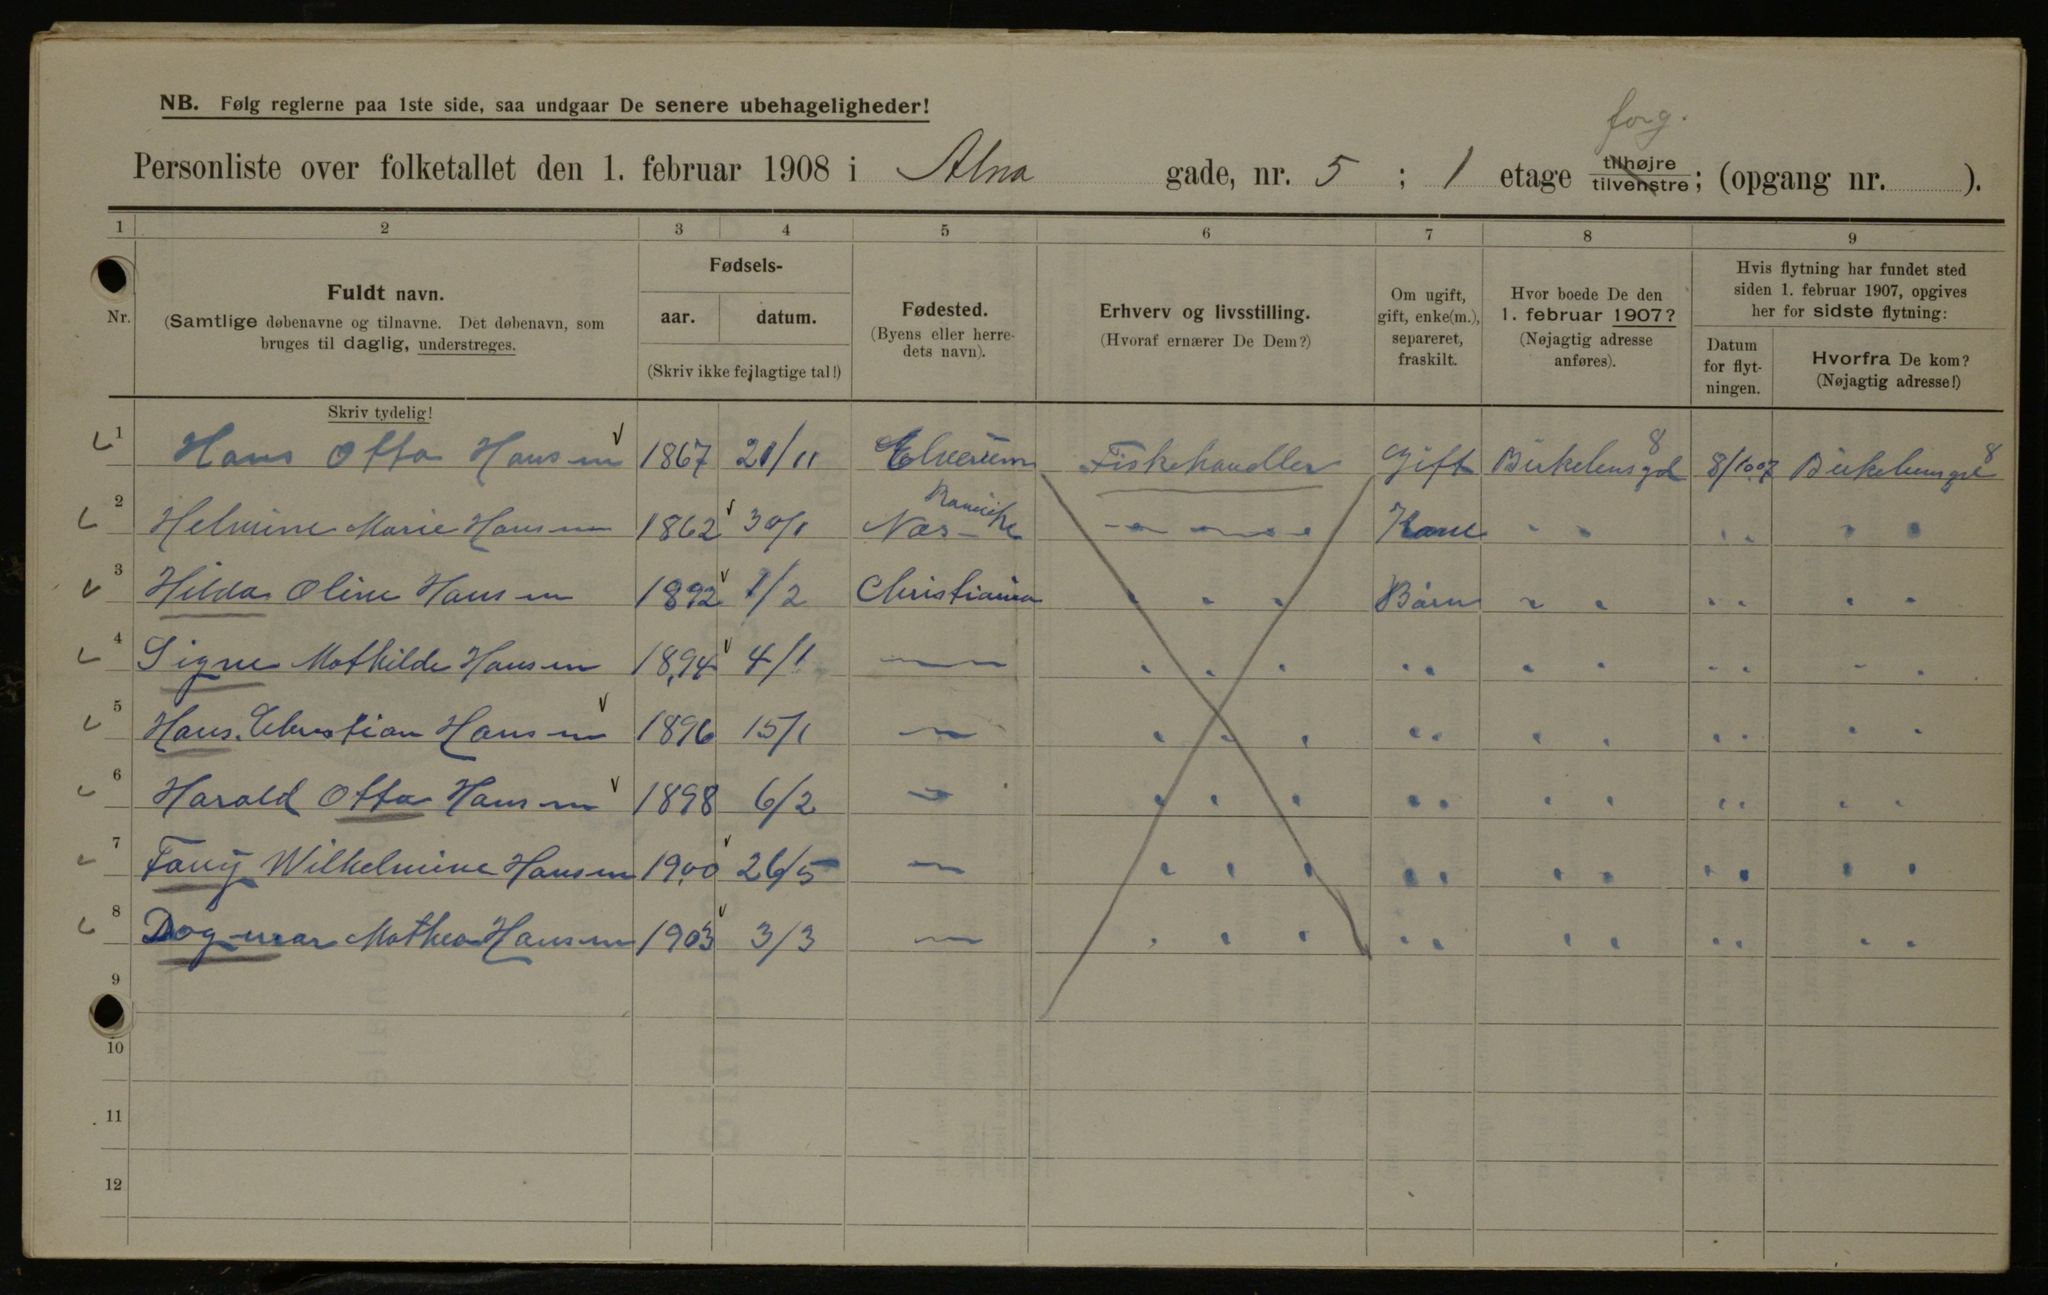 forg.
NB. Følg reglerne paa 1ste side, saa undgaar De senere ubehageligheder!
Personliste over folketallet den 1. februar 1908 i Alna gade, nr. 5 ; 1 etage tilhøjre tilvenstre; (opgang nr. ).
1 2 3 4 5 6 7 8 9
Nr.
Fuldt navn.
(Samtlige døbenavne og tilnavne. Det døbenavn, som
bruges til daglig, understreges.
Skriv tydelig!
Fødsels-
aar. datum.
(Skriv ikke fejlagtige tal!)
Fødested.
(Byens eller herre-
dets navn).
Erhverv og livsstilling.
(Hvoraf ernærer De Dem?)
Om ugift,
gift, enke(m.),
separeret,
fraskilt.
Hvor boede De den
1. februar 1907?
(Nøjagtig adresse
anføres).
Hvis flytning har fundet sted
siden 1. februar 1907, opgives
her for sidste flytning:
Datum
for flyt-
ningen.
Hvorfra De kom?
(Nøjagtig adresse!)
1 Hans Otto Hansen 1867 21/11 Elverum Fiskehandler Gift Birkelunsgd 8 8/10 07 Birkelunsgd 8
2 Helmine Marie Hansen 1862 30/1 Næs Kone " " " " " "
3 Hilda Oline Hansen 1892 1/2 Christiania " " " Børn " " " " " "
4 Signe Mathilde Hansen 1894 4/1 — " " " " " " " " " " "
5 Hans Christian Hansen 1896 15/1 — " " " " " " " " " " "
6 Harald Otto Hansen 1898 6/2 — " " " " " " " " " " "
7 Fany Wilhelmine Hansen 1900 26/5 — " " " " " " " " " " "
8 Dagmar Mathea Hansen 1903 3/3 — " " " " " " " " " " "
9
10
11
12